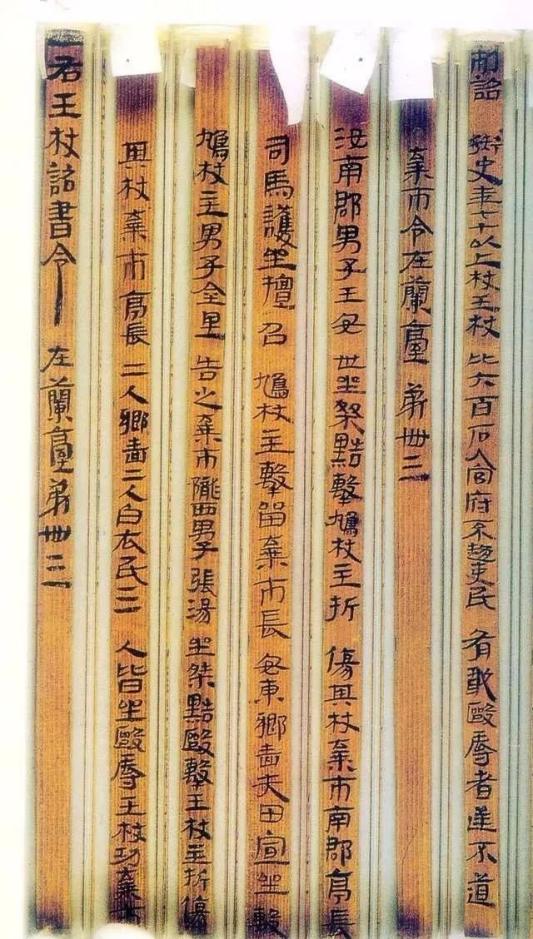 制詔 御史年七十以上杖王杖 比六百石入官府不趨吏民 有敢毆辱者逆不道
棄市令在蘭臺 第卌三
汝南郡男子王安 世坐桀黠擊鳩杖主折 傷其杖棄市南郡亭長
司馬護坐擅召 鳩杖主擊留棄市長 安東鄉嗇夫田宣坐毄
鳩杖主男子金里 告之棄市隴西男子張湯 坐桀黠毆擊王杖主折傷
其杖棄市亭長 二人鄉嗇二人白衣民三 人皆坐毆辱王杖功棄市
右王杖詔書令 在蘭臺第卌三